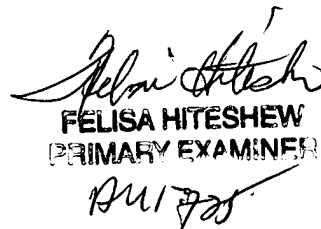 Felisa Hiteshew
FELISA HITESHEW
PRIMARY EXAMINER